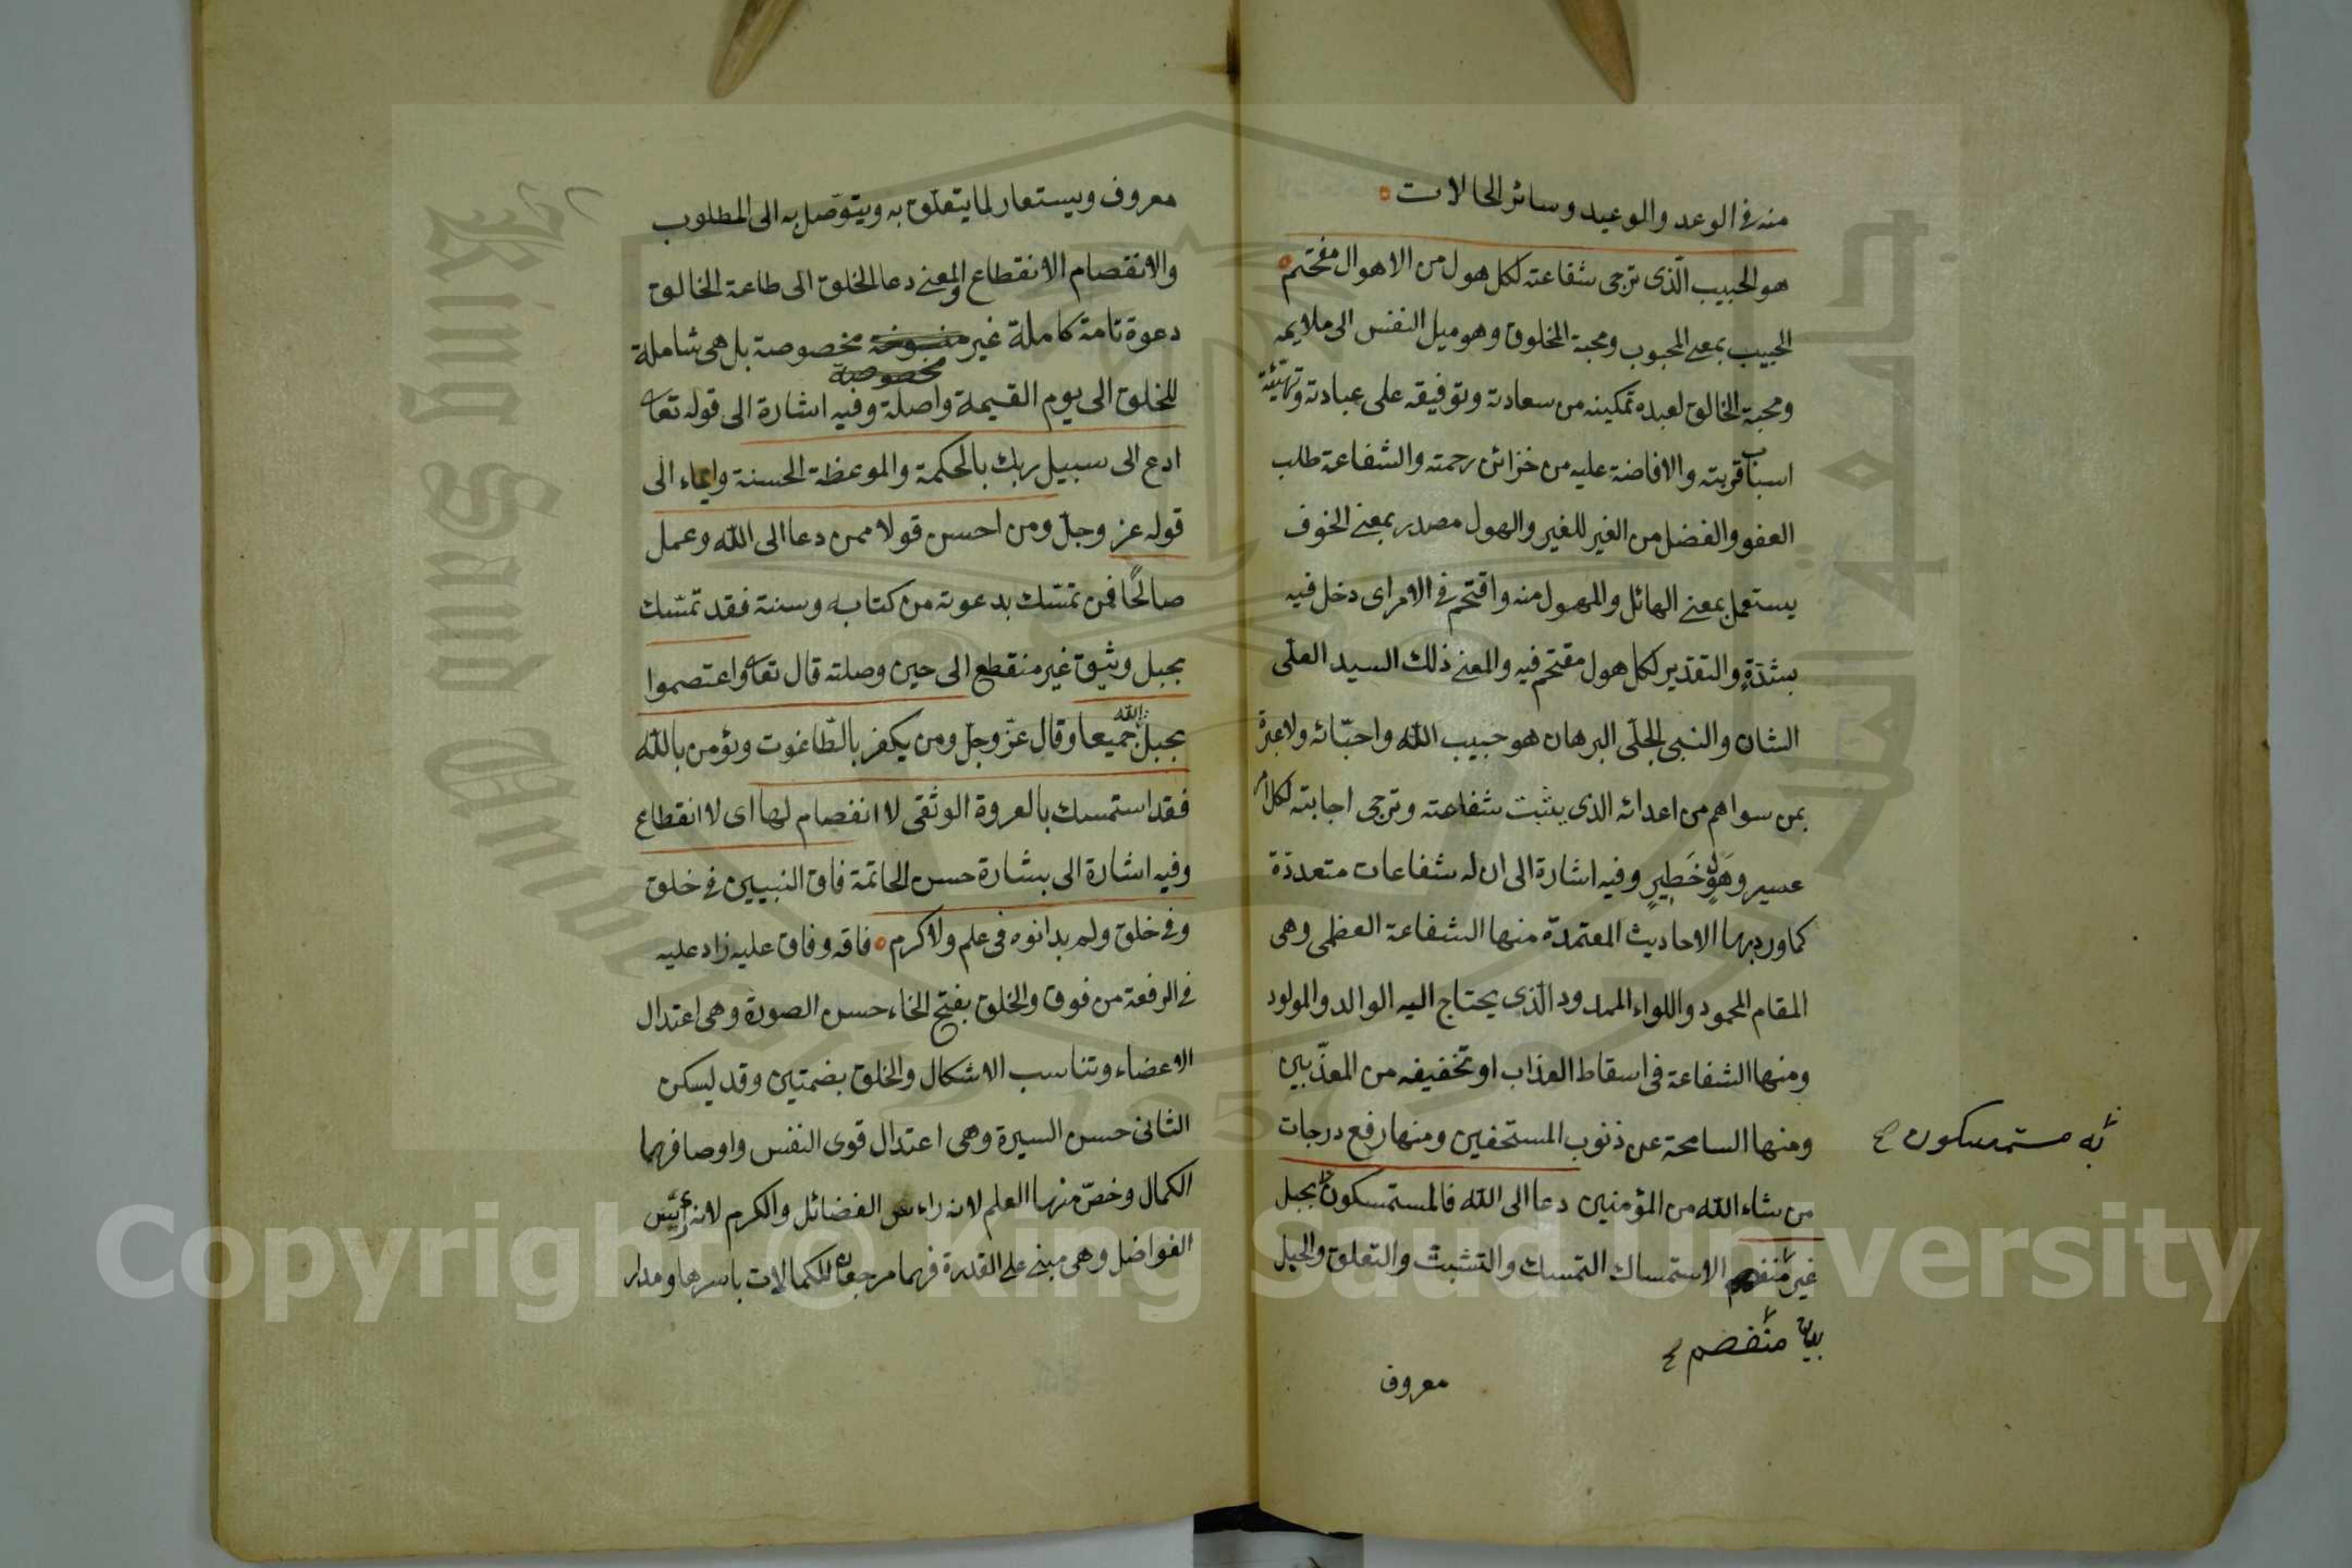 منه فى الوعد والوعيد وسائر الحالات
هو الحبيب الّذى ترجى شفاعته لكل هول من الاهوال مقتحم
الحبيب بمعنى المحبوب ومحبة المخلوق وهو ميل النفس الى ملايمه
ومحبة الخالق لعبده تمكينه من سعادته وتوفيقه على عبادته وتهيئة
اسباب قربته والافاضة عليه من خزائن رحمته والشفاعة طلب
العفو والفضل من الغير للغير والهول مصدر بمعنى الخوف
يستعمل بمعنى الهائل والمهول منه واقتحم فى الامر اى دخل فيه
بشدّةٍ والتقدير لكل هول مقتحم فيه والمعنى ذلك السيد العلى
الشان والنبى الجلّى البرهان هو حبيب الله واحبّائه ولا عبرة
بمن سواهم من اعدائه الذى يثبت شفاعته وترجى اجابته لكل امر
عسير وهَولٍ خَطِيرٍ وفيه اشارة الى ان له شفاعات متعددة
كما ورد بها الاحاديث المعتمدة منها الشفاعة العظمى وهى
المقام المحمود واللواء الممدود الّذى يحتاج اليه الوالد والمولود
ومنها الشفاعة فى اسقاط العذاب او تخفيفه من المعذّبين
ومنها السامحة عن ذنوب المستحفين ومنها رفع درجات
به مستمسكون
من شاء الله من المؤمنين دعا الى الله فالمستمسكون بحبل
غير منفصم الاستمساك التمسك والتشبث والتعلق والحبل
بيان منفصم
معروف
معروف ويستعار لما يتعلّق به ويتوّصل به الى المطلوب
والانفصام الانقطاع والمعنى دعا الخلق الى طاعة الخالق
دعوة تامة كاملة غير منسوخة مخصوصة بل هى شاملة
مخصوصة
للخلق الى يوم القيمة واصلة وفيه اشارة الى قوله تعا
ادع الى سبيل ربك بالحكمة والموعظة الحسنة وايماء الى
قوله عز وجلّ ومن احسن قولا ممن دعا الى الله وعمل
صالحًا فمن تمسّك بدعوته من كتابه وسنة فقد تمسّك
بحبل وثيق غير منقطع الى حين وصلته قال تعا واعتصموا
بحبل الله جميعا وقال عزّ وجلّ ومن يكفر بالطّاغوت ويؤمن بالله
فقد استمسك بالعروة الوثقى لا انفصام لها اى لا انقطاع
وفيه اشارة الى بشارة حسن الخاتمة فاق النبيين فى خلق
وفى خلق ولم يدانوه فى علم ولا كرم فاقه وفاق عليه زاد عليه
فى الرفعة من فوق والخلق بفتح الخاء حسن الصورة وهى اعتدال
الاعضاء وتناسب الاشكال والخلق بضمتين وقد يسكن
الثانى حسن السيرة وهى اعتدال قوى النفس واوصافها
الكمال وخصّ منها العلم لانه راس الفضائل والكرم لانه
الفواضل وهى مبنى على القدرة فهما مرجعان للكمالات باسرها ومدار
King Saud University
1957
Copyright © King Saud University